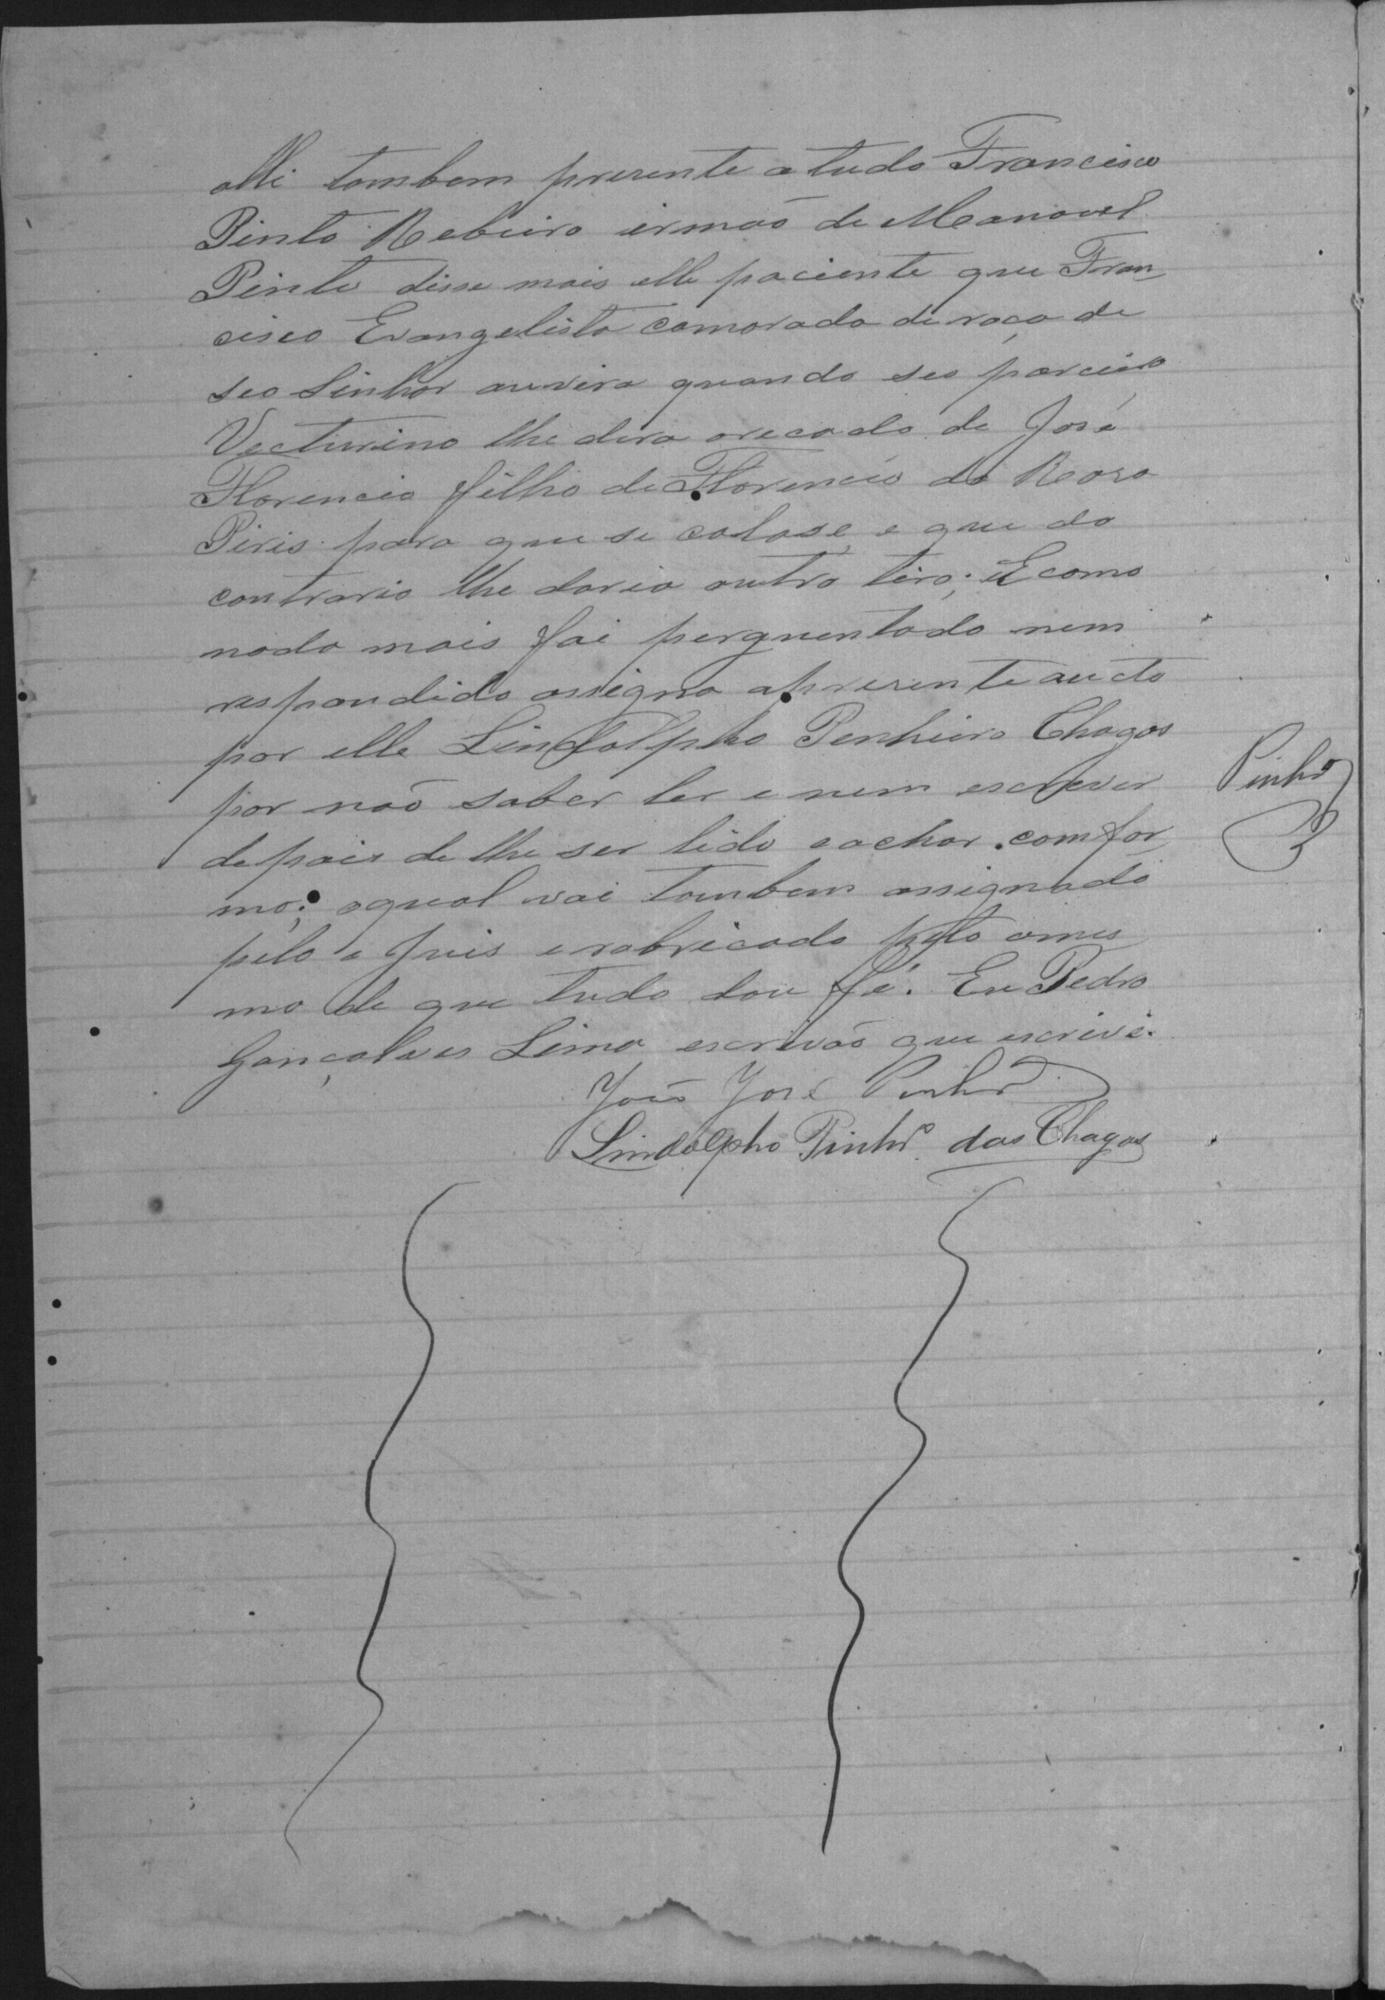 alli tambem presente a tudo Francisco
Pinto Rebeiro irmaõ de Manoel
Pinto disse mais elle paciente que Fran
cisco Evangelista camarada de roça de
seo Sinhor ouvira quando seo parceiro
Vecturino lhe dera orecado de José
Florencio filho de Florencio da Rosa
Piris para que se calase e que do
contrario lhe daria outro tiro; E como
nada mais foi perguentado nem
respondido assigna apresente aucto
por elle Lindolpho Penheiro Chagas
por naõ saber ler e nem escrever
depois de lhe ser lido eachar comfor
mo; oqual vai tambem assignado
pelo o Juis e rabricado pelo omes
mo de que tudo dou fé. Eu Pedro
Gonçalves Lima escrivaõ que escrivi.
Joaõ José Pinhrº
Lindolpho Pinhrº das Chagas
Pinhrº